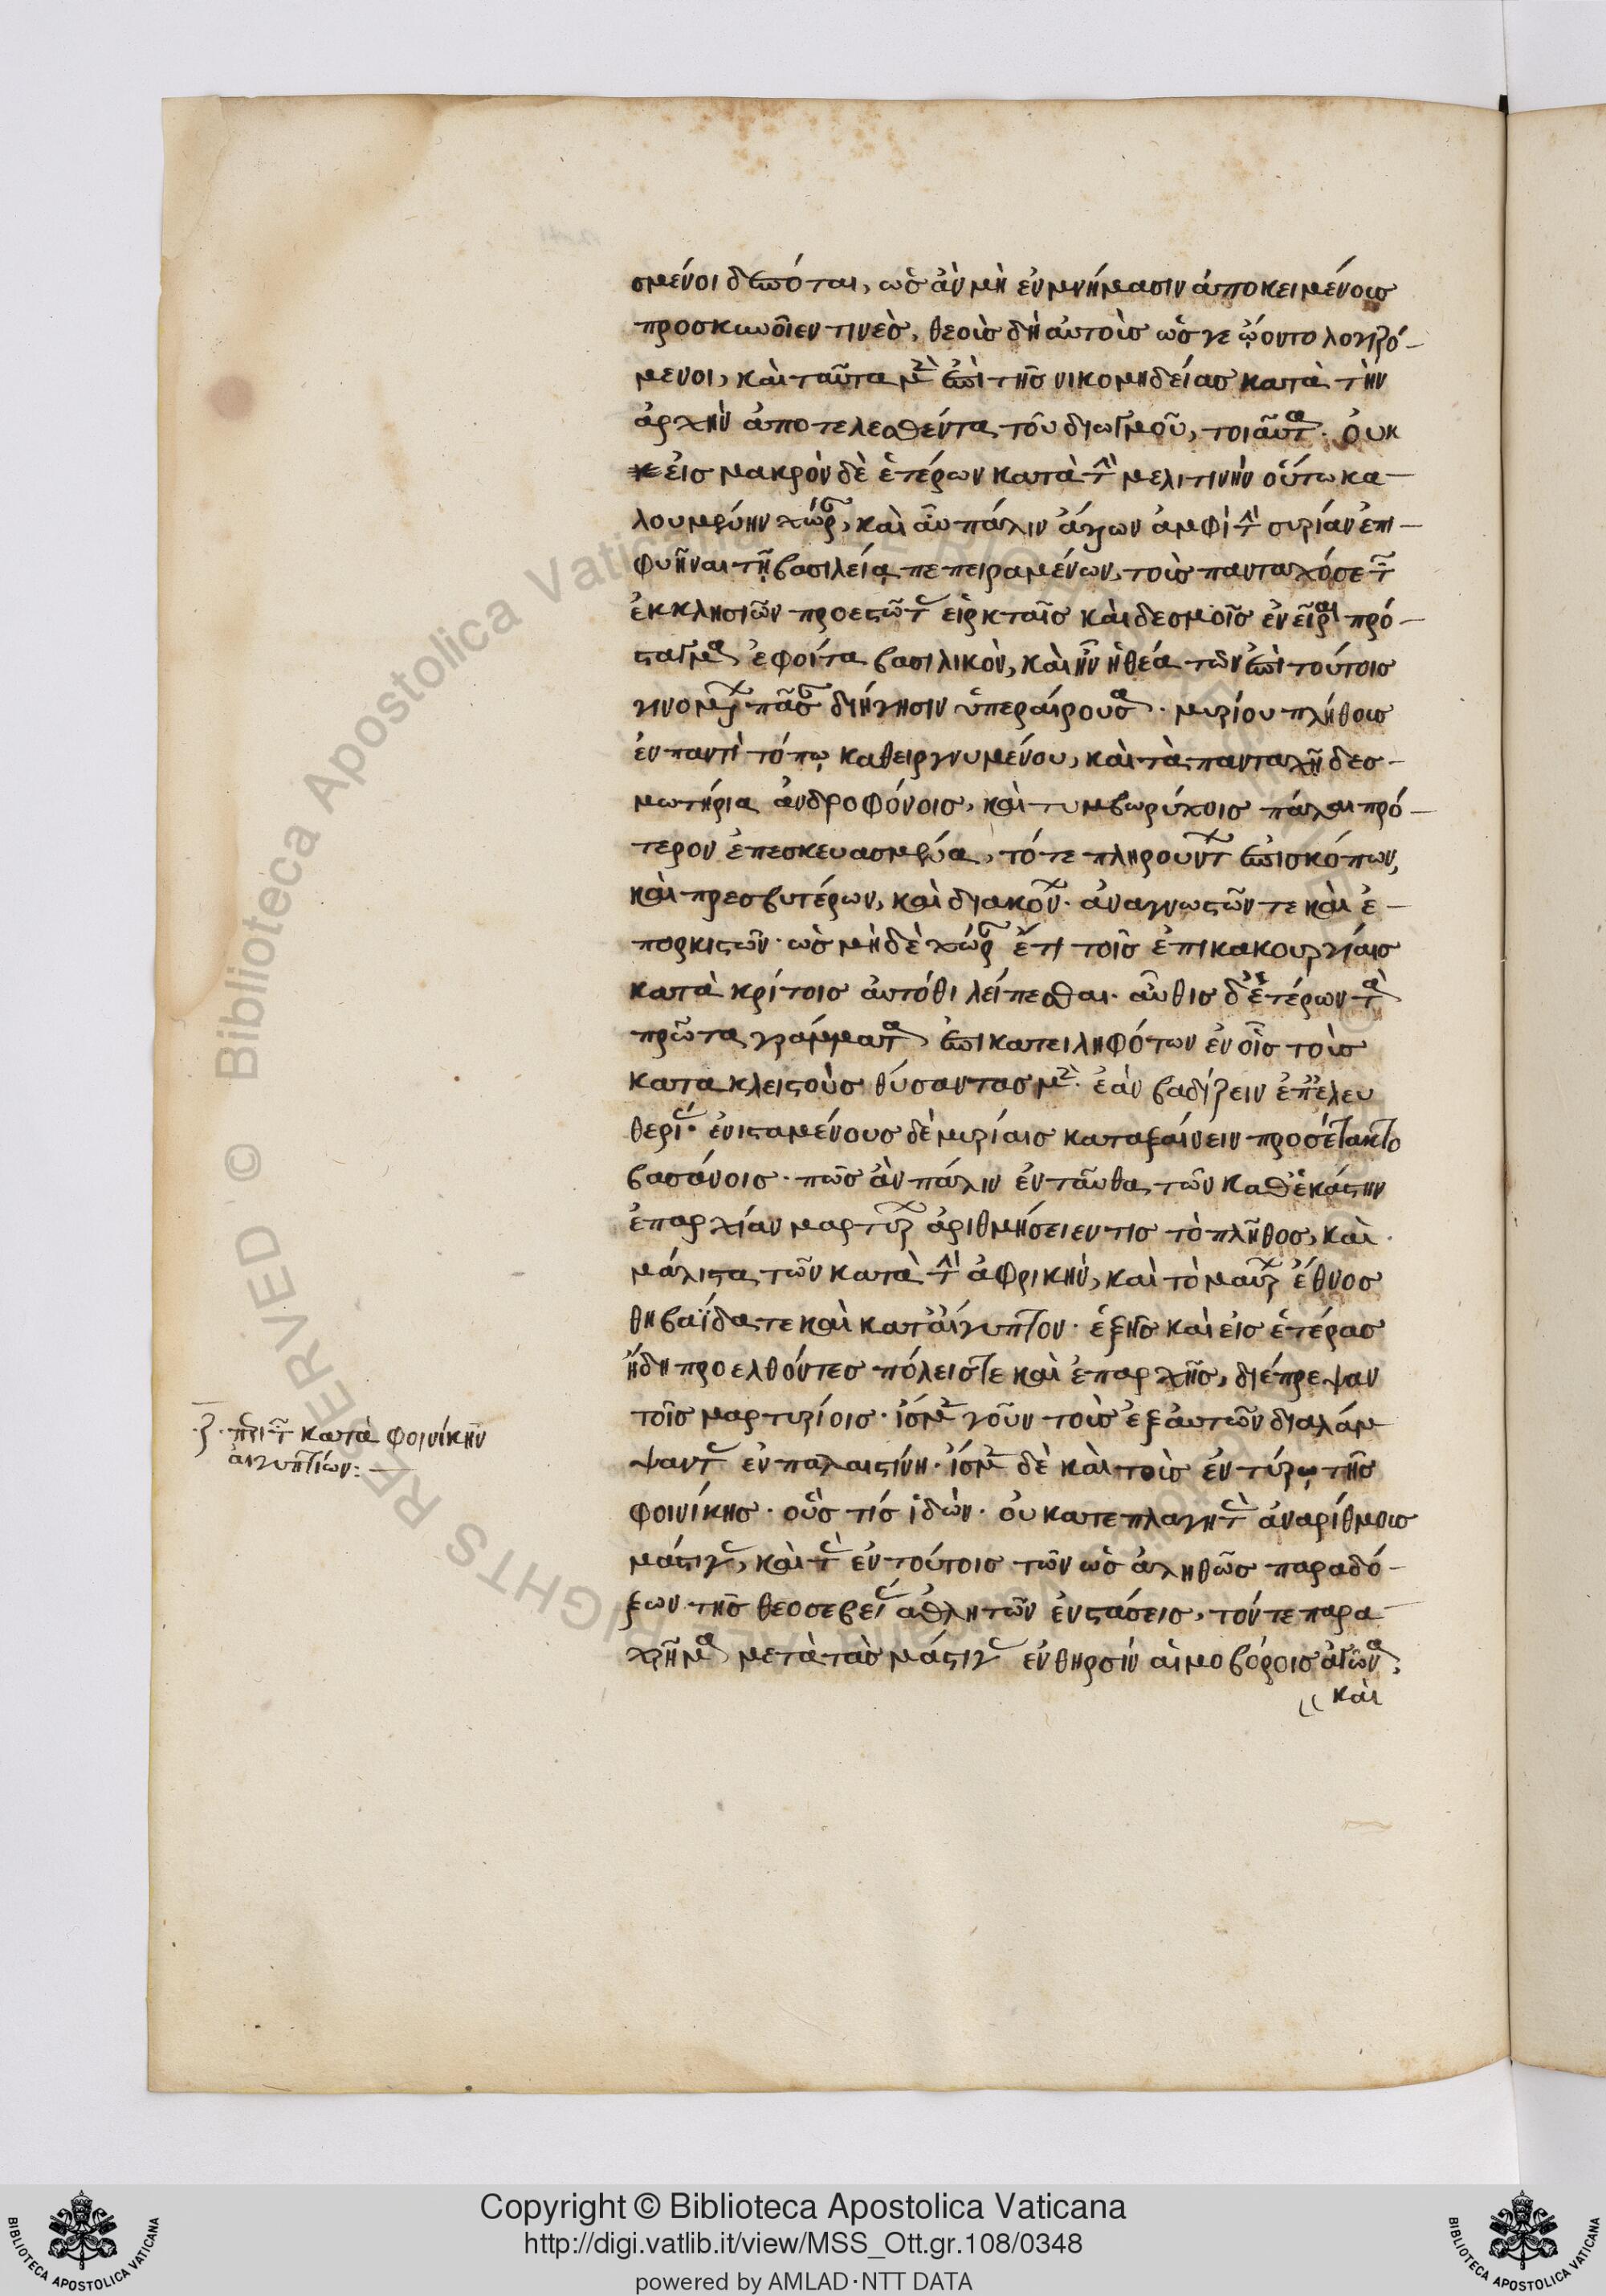 σμένοι δεσπόται, ὡς ἂν μὴ ἐν μνήμασιν ἀποκειμένοις
προσκυνοῖεν τινὲς, θεοὺς δὴ αὐτοὺς ὥς γε ᾤοντο λογιζό-
μενοι, καὶ ταῦτα μὲν ἐπὶ τῆς νικομηδείας κατὰ τὴν
ἀρχὴν ἀποτελεσθέντα τοῦ διωγμοῦ, τοιαῦτα. οὐκ
εἰς μακρὸν δὲ ἑτέρων κατὰ τὴν μελιτινὴν οὕτω κα-
λουμένην χώραν, καὶ αὖ πάλιν ἄλλων ἀμφὶ τὴν συρίαν ἐπι-
φυῆναι τῇ βασιλείᾳ πεπειραμένων, τοὺς πανταχόσε τῶν
ἐκκλησιῶν προεστῶτας εἱρκταῖς καὶ δεσμοῖς ἐνεῖραι πρό-
σταγμα ἐφοίτα βασιλικὸν, καὶ ἦν ἡ θέα τῶν ἐπὶ τούτοις
γινομένων πᾶσαν διήγησιν ὑπεραίρουσα. μυρίου πλήθους
ἐν παντὶ τόπῳ καθειργνυμένου, καὶ τὰ πανταχῇ δεσ-
μωτήρια ἀνδροφόνοις, καὶ τυμβωρύχοις πάλαι πρό-
τερον ἐπεσκευασμένα, τότε πληρούντων ἐπισκόπων,
καὶ πρεσβυτέρων, καὶ διακόνων. ἀναγνωστῶν τε καὶ ἐ-
πορκιστῶν. ὡς μὴ δὲ χώραν ἔτι τοῖς ἐπι κακουργίαις
κατὰ κρίτοις αὐτόθι λείπεσθαι. αὖθις δ' ἑτέρων τὰ
πρῶτα γράμματα ἐπικατειληφότων ἐν οἷς τοὺς
κατακλείστους θύσαντας μὲν. ἐὰν βαδίζειν ἐπ' ἐλευ
θερίας. ἐνισταμένους δὲ μυρίαις καταξαίνειν προσέτακτο
βασάνοις. πῶς ἂν πάλιν ἐνταῦθα τῶν καθ' ἑκάστην
ἐπαρχίαν μαρτύρων ἀριθμήσειεν τις τὸ πλῆθος, καὶ
μάλιστα τῶν κατὰ τὴν ἀφρικὴν, καὶ τὸ μαύρων ἔθνος
θηβαΐδα τε καὶ κατ' αἴγυπτον. ἑξῆς καὶ εἰς ἑτέρας
ἤδη προελθόντες πόλεις τε καὶ ἐπαρχῆς, διέπρεψαν
τοῖς μαρτυρίοις. ἴσμεν γοῦν τοὺς ἐξ αὐτῶν διαλάμ
ψαντας ἐν παλαιστίνη. ἴσμεν δὲ καὶ τοὺς ἐν τύρῳ τῆς
φοινίκης. οὓς τίς ἰδὼν. οὐ κατεπλάγη τὰς ἀναρίθμους
μάστιγας, καὶ τὰς ἐν τούτοις τῶν ὡς ἀληθῶς παραδό-
ξων τῆς θεοσεβείας ἀθλητῶν ἐνστάσεις, τόν τε παρα
χρῆμα μετὰ τὰς μάστιγας ἐν θηρσὶν αἱμοβόροις ἀγῶνα,
καὶ
ζ. περὶ τῶν κατὰ φοινίκην
αἰγυπτίων:
Copyright © Biblioteca Apostolica Vaticana
http://digi.vatlib.it/view/MSS_Ott.gr.108/0348
powered by AMLAD·NTT DATA